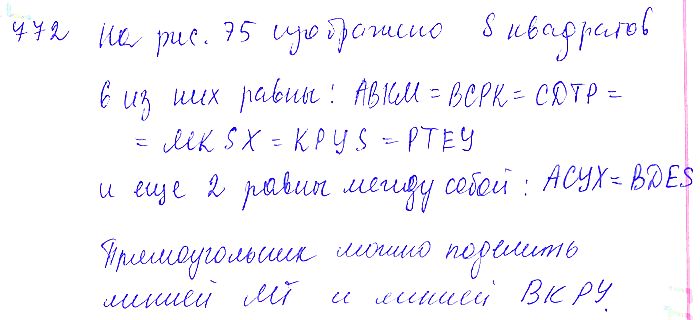 772 На рис. 75 изображено 8 квадратов
6 из них равны: ABKM = BCPK = CDTP =
= MKSX = KPYS = PTEY
и еще 2 равны между собой: ACYX = BDES
Прямоугольник можно поделить
линией MT и линией BKPY.